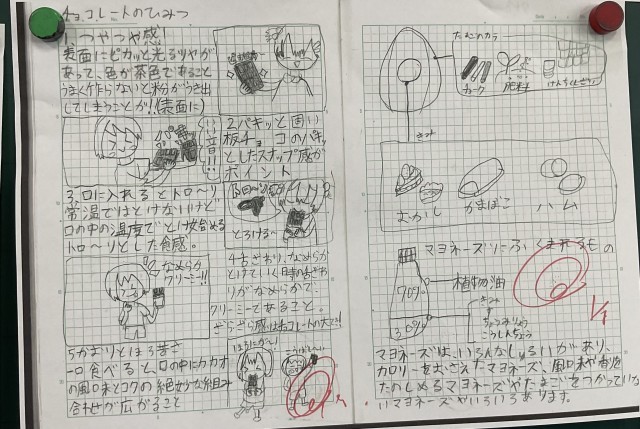 チョコレートのひみつ
1つやつや感!
表面にピカッと光るツヤが
あって、色が茶色であること
うまく作らないと糸分がうき出
してしまうことが!!(表面に)
2パキッと固い
板チョコのパキッ
としたスナップ感が
ポイント
3.口に入れるとトロ〜リ
常温ではとけないけど
口の中の温度でとけ始める
トロ〜リとした食感。
とろける〜
なめらか
クリーミー!!
4舌ざわり、なめらか
とけていく時の舌ざわ
りがなめらかで、
クリーミーであること。
ざらざら感はチョコレートの大てき!!
5かおりとほろ苦さ
一口食べると、口の中にカカオ
の風味とコクの絶妙な組み
合わせが広がること
たまごのカラ
チョーク
肥料
けんちくざいりょう
きみ
むかし
かまぼこ
ハム
マヨネーズにふくまれるもの
70%
植物油
30%
きみ
ちょうみりょう
こうしんりょう
マヨネーズは、いろんなしゅるいがあり、
カロリーをおさえたマヨネーズ、風味やお味を
たのしめるマヨネーズやたまごをつかっていな
いマヨネーズやいろいろあります。